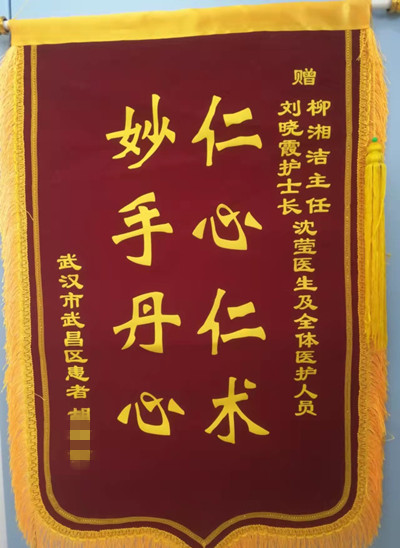 赠
柳湘洁主任
刘晓霞护士长沈莹医生及全体医护人员
仁心仁术
妙手丹心
武汉市武昌区患者胡